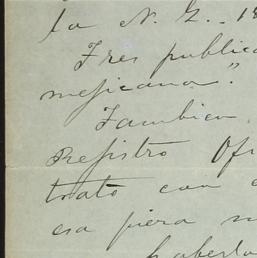 la N. Z. - 18
Tres publica
mejicana".
Tambien
Registro Ofi
trato con
esa piera
haberlo